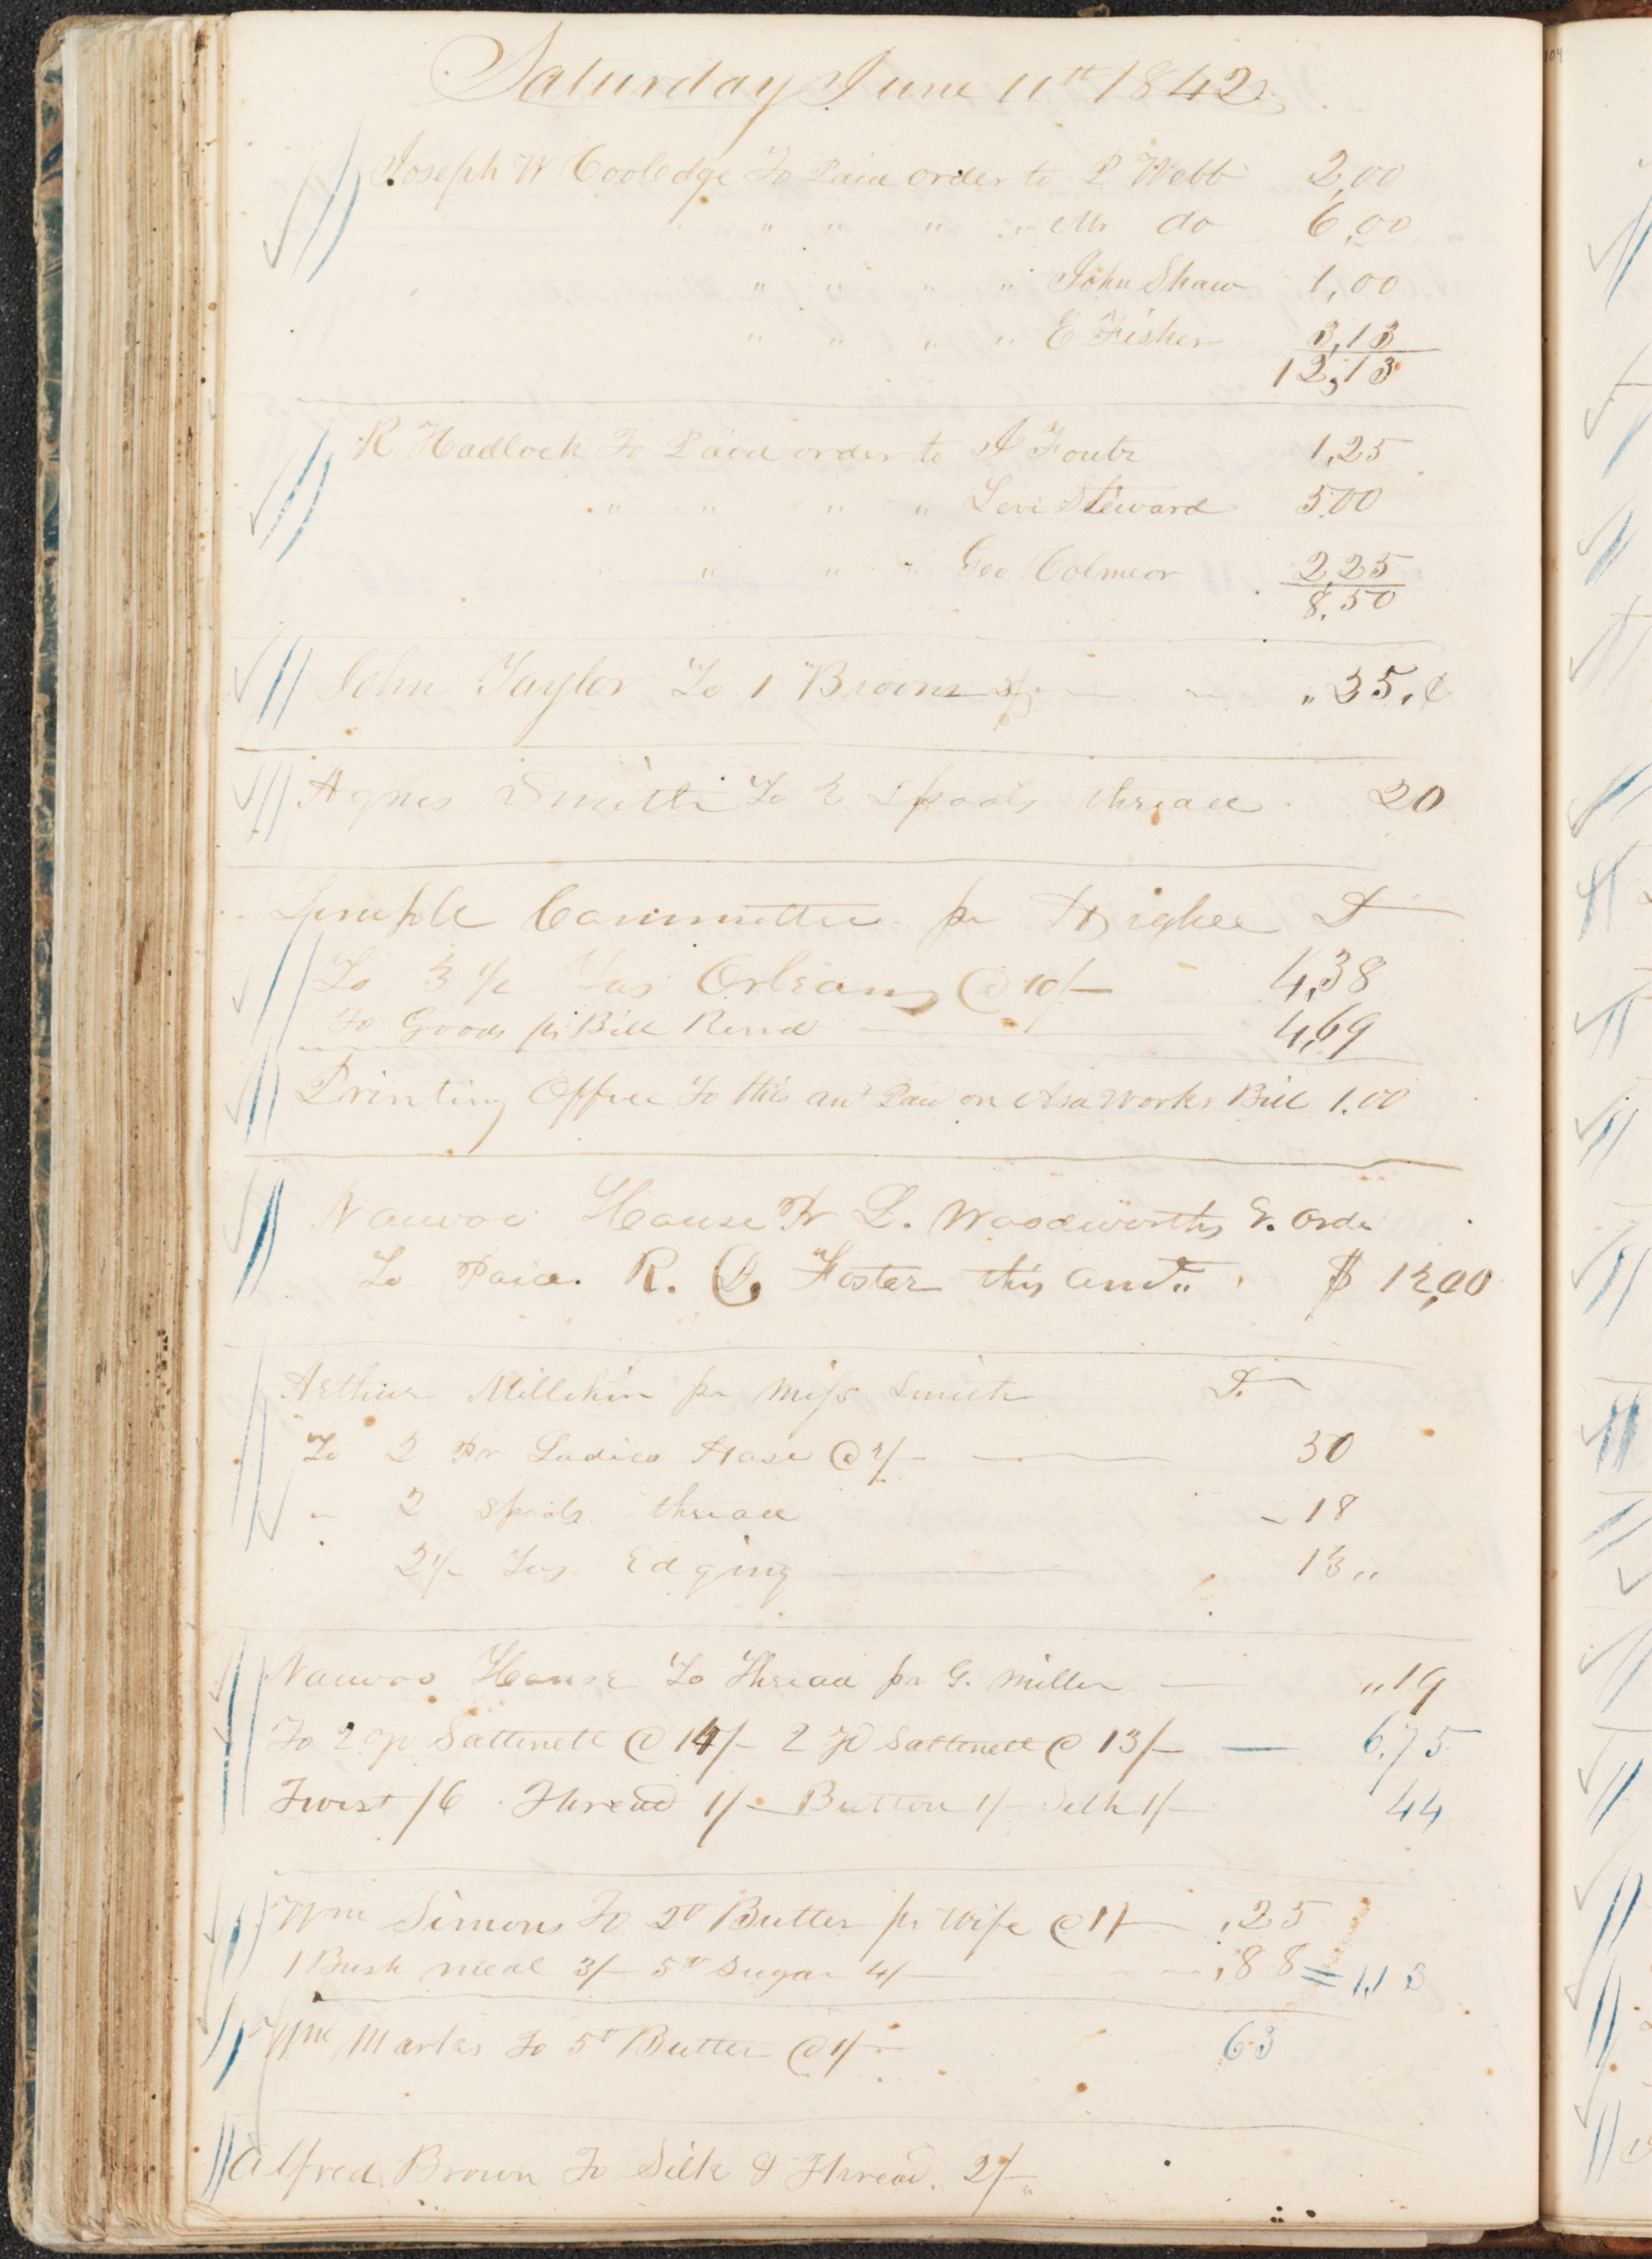 Saturday June 11th 1842
Joseph W Coolidge To Paid order to P Webb 2,00
" " " " Mr do 6,00
" " " " John Shaw 1,00
" " " " E Fisher 3,13
12,13
R Hadlock To Paid order to J Foutz 1,25
" " " " Levi Steward 5.00
" " " " Geo Colmeor 2,25
8,50
John Taylor To 1 Broom " 35, ¢
Agnes Smith To 2 Spools thread 20
Temple Committee pr Higbee Dr
To 3 1/2 Yds Orleans @ 10/- 4,38
To Goods pr Bill Rend 4,69
Printing Office To this amt Paid on Asa Works Bill 1.00
Nauvoo House Pr L. Woodworths V. Order
To Paid. R. D. Foster this amt" $ 12,00
Arthur Millikin pr Miss Smith Dr
To 2 Pr Ladies Hose @ 2/- 50
" 2 Spools thread 18
2 1/2 Yds Edging 13 "
Nauvoo House To Thread pr G. Miller " 19
To 2 yd Sattinett @ 14/- 2 yd Sattinett @ 13/- 6.75
Twist /6 Thread 1/- Button 1/- Silk 1/- 44
Wm Simons To 2 lb Butter pr Wife @ 1/- ,25
1 Bush meal 3/- 5 lb Sugar 4/- ,88 = 1,13
Wm Marks To 5 lb Butter @ 1/- 63
Alfred Brown To Silk & Thread. 2/-
104